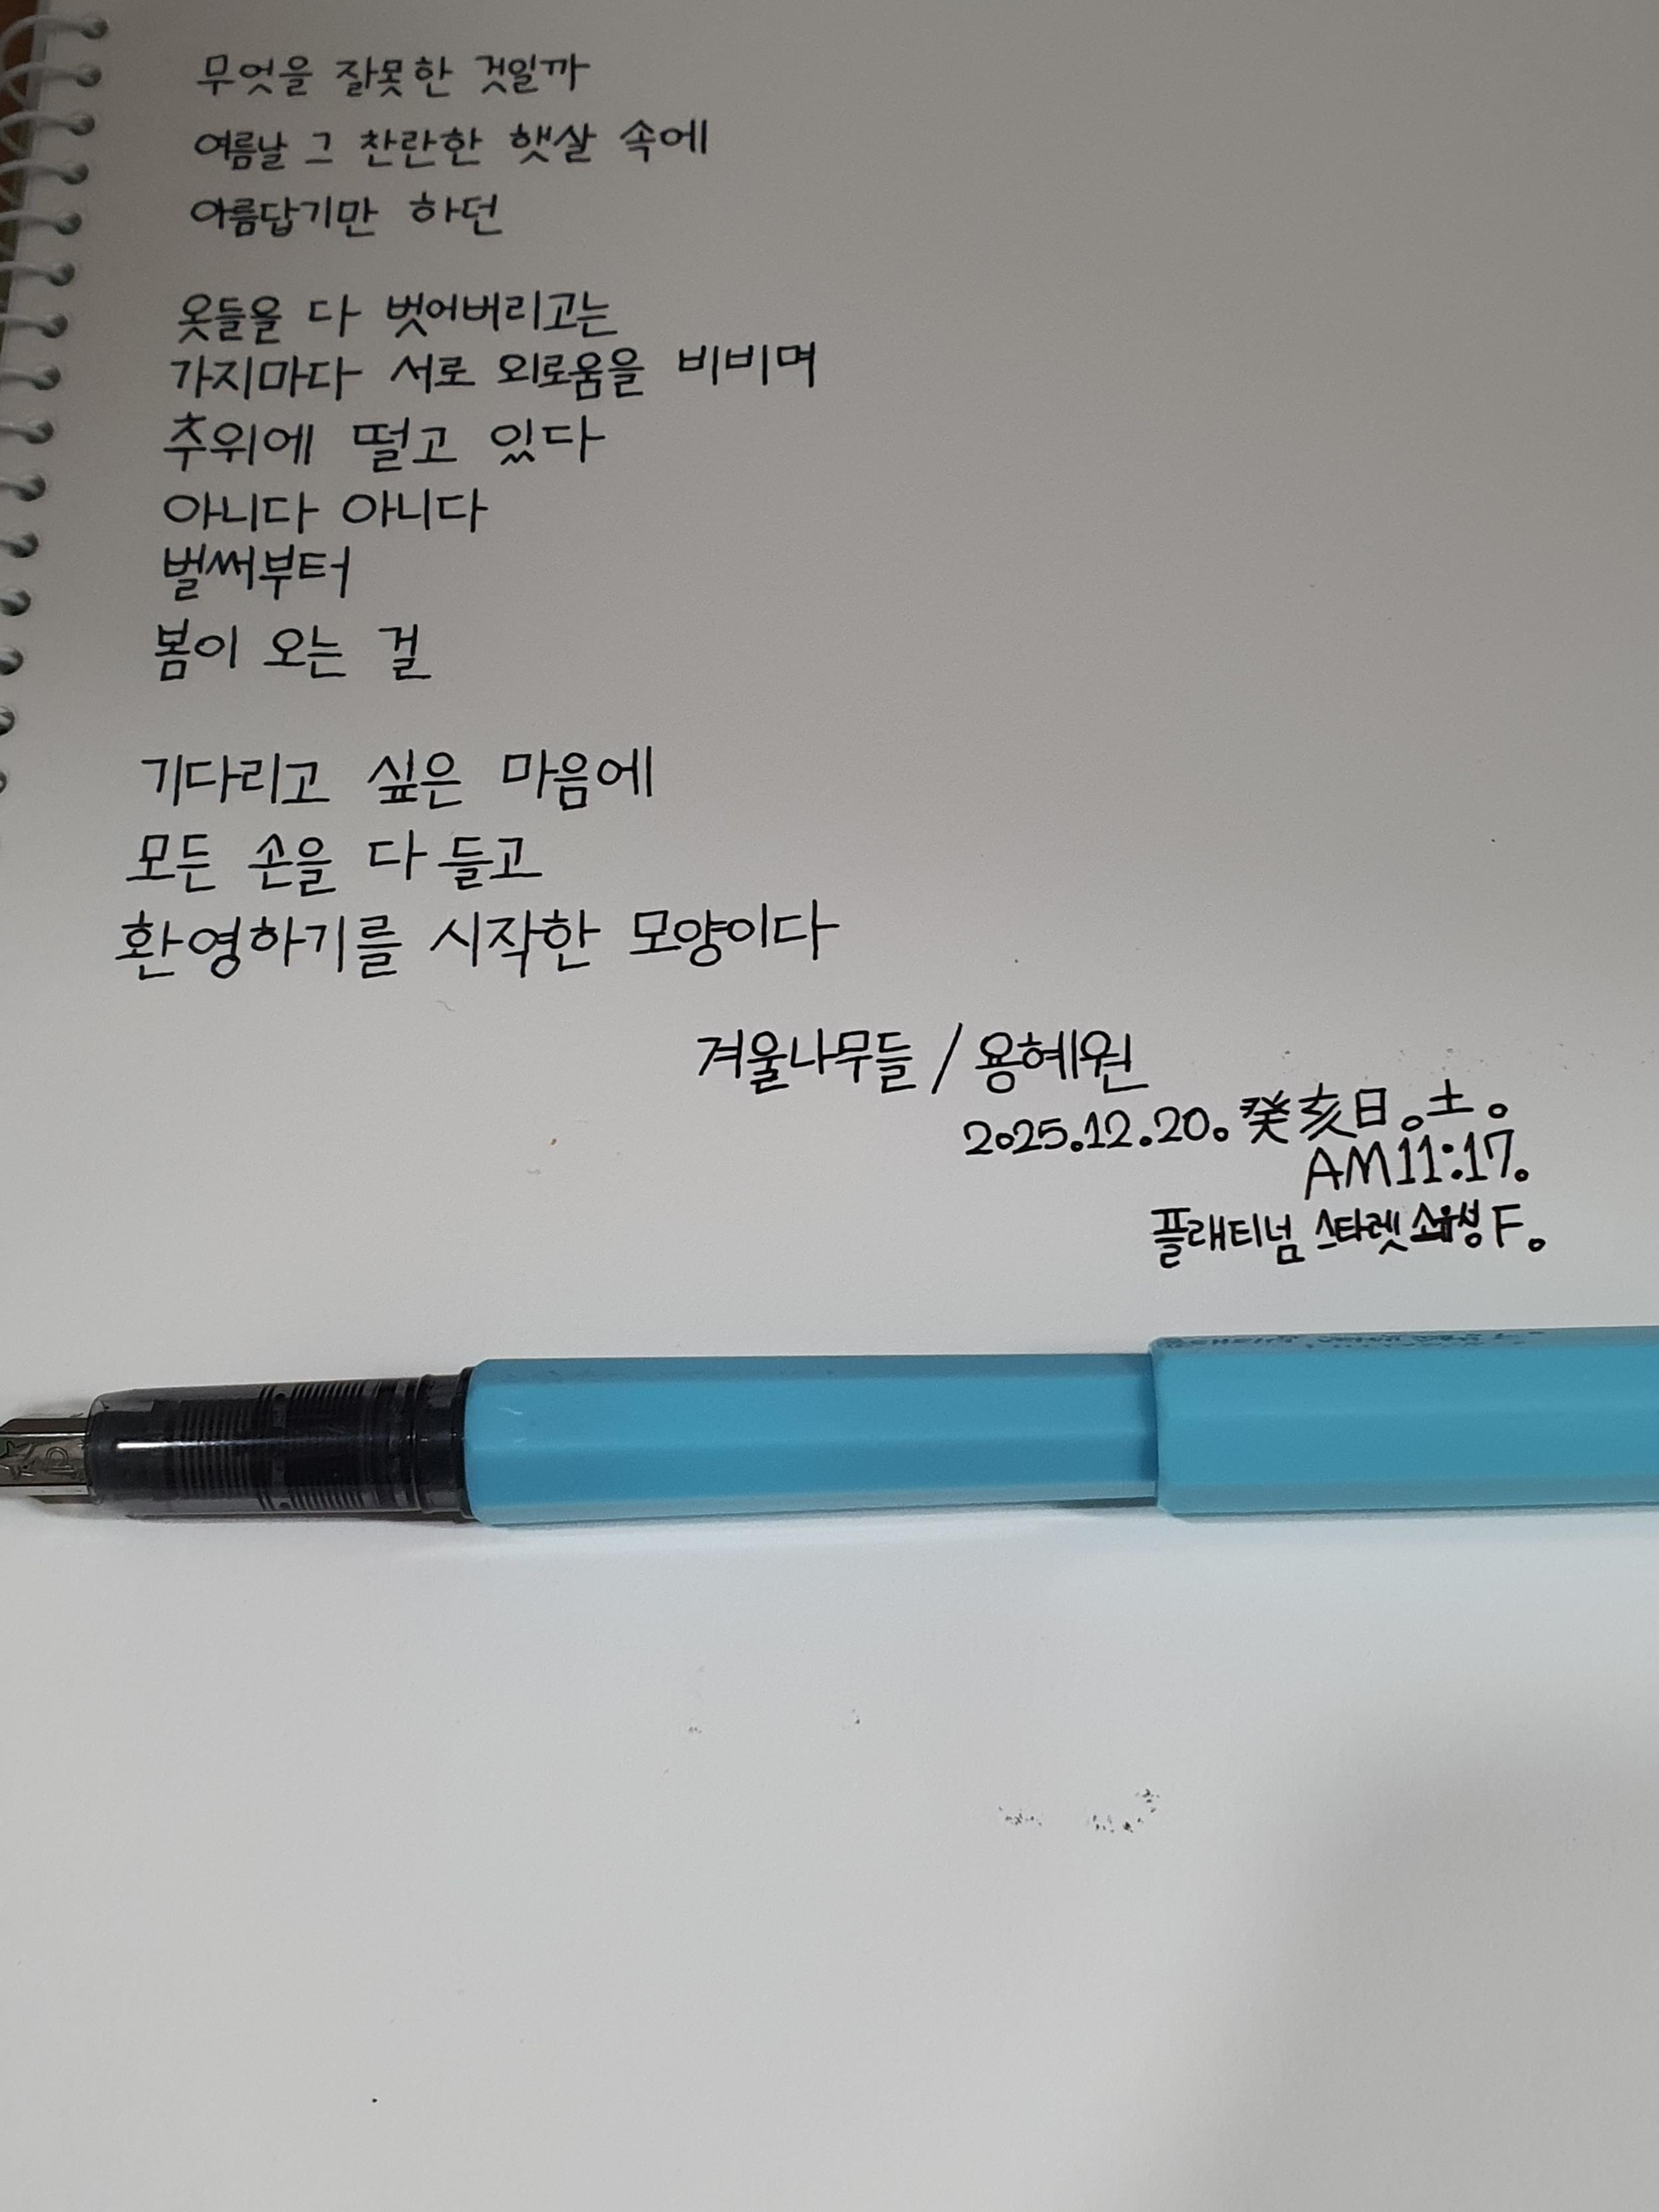 무엇을 잘못한 것일까
여름날 그 찬란한 햇살 속에
아름답기만 하던
옷들을 다 벗어버리고는
가지마다 서로 외로움을 비비며
추위에 떨고 있다
아니다 아니다
벌써부터
봄이 오는 걸
기다리고 싶은 마음에
모든 손을 다 들고
환영하기를 시작한 모양이다
겨울나무들 / 용혜원
2025.12.20. 癸亥日。土。
AM11:17.
플래티넘 스타렛 소유성 F.